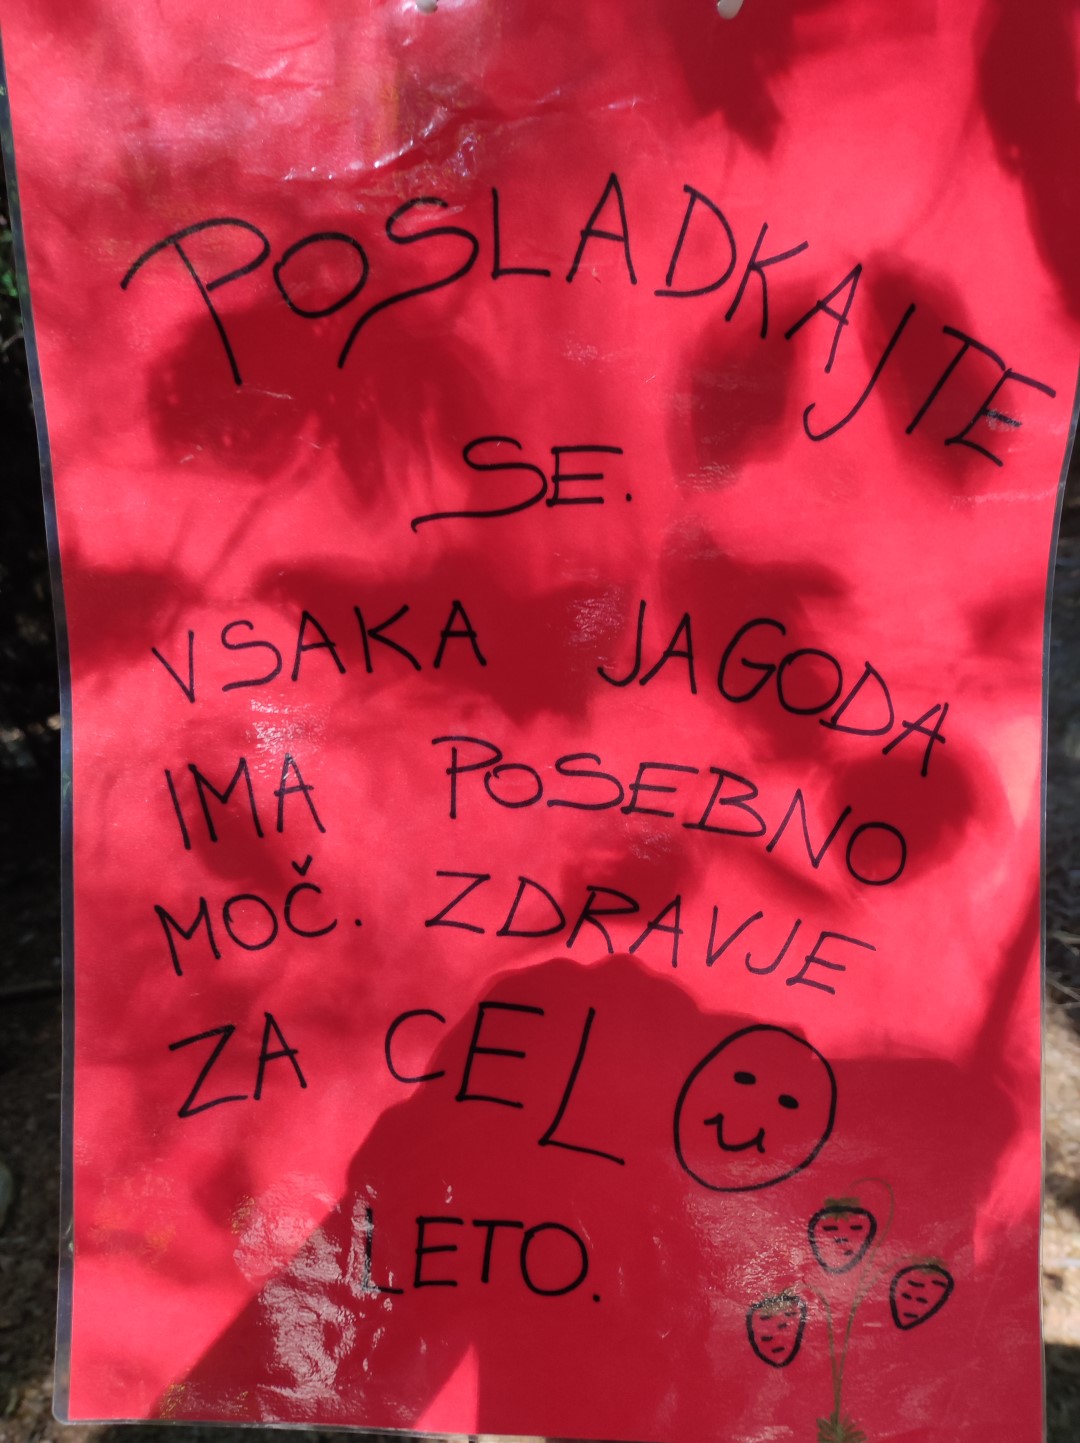 POSLADKAJTE
SE.
VSAKA JAGODA
IMA POSEBNO
MOČ. ZDRAVJE
ZA CELO
LETO.